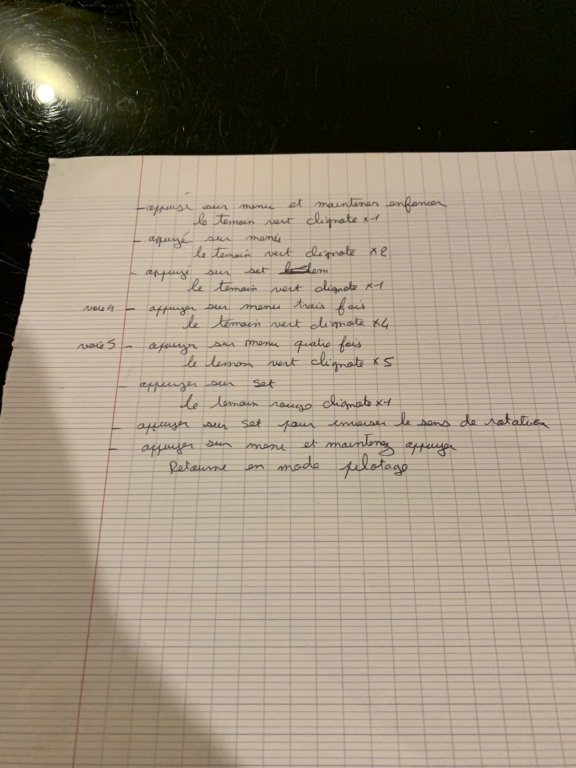 - appuyé sur menu et maintenez enfoncer
le temoin vert clignote x1
- appuyé sur menu
le temoin vert clignote x2
- appuyé sur set
le temoin vert clignote x1
voie 4 - appuyer sur menu trais fois
le temoin vert clignote x4
voie 5 - appuyer sur menu quatre fois
le temoin vert clignote x5
- appuyer sur set
le temoin rouge clignote x1
- appuyer sur set pour inverser le sens de rotation
- appuyer sur menu et maintenez appuyer
Retourne en mode pilotage